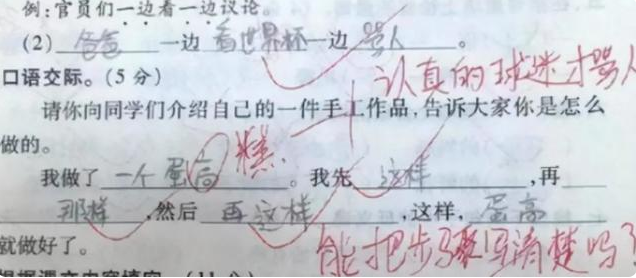 例:官员们一边看一边议论。
(2) 爸爸 一边 看世界杯 一边 骂人 。
认真的球迷才骂人
口语交际。(5分)
请你向同学们介绍自己的一件手工作品,告诉大家你是怎么
做的。
糕!
我做了 一个蛋高 。我先 这样 ,再
那样 ,然后 再这样 ,这样, 蛋高
就做好了。
能把步骤写清楚吗?